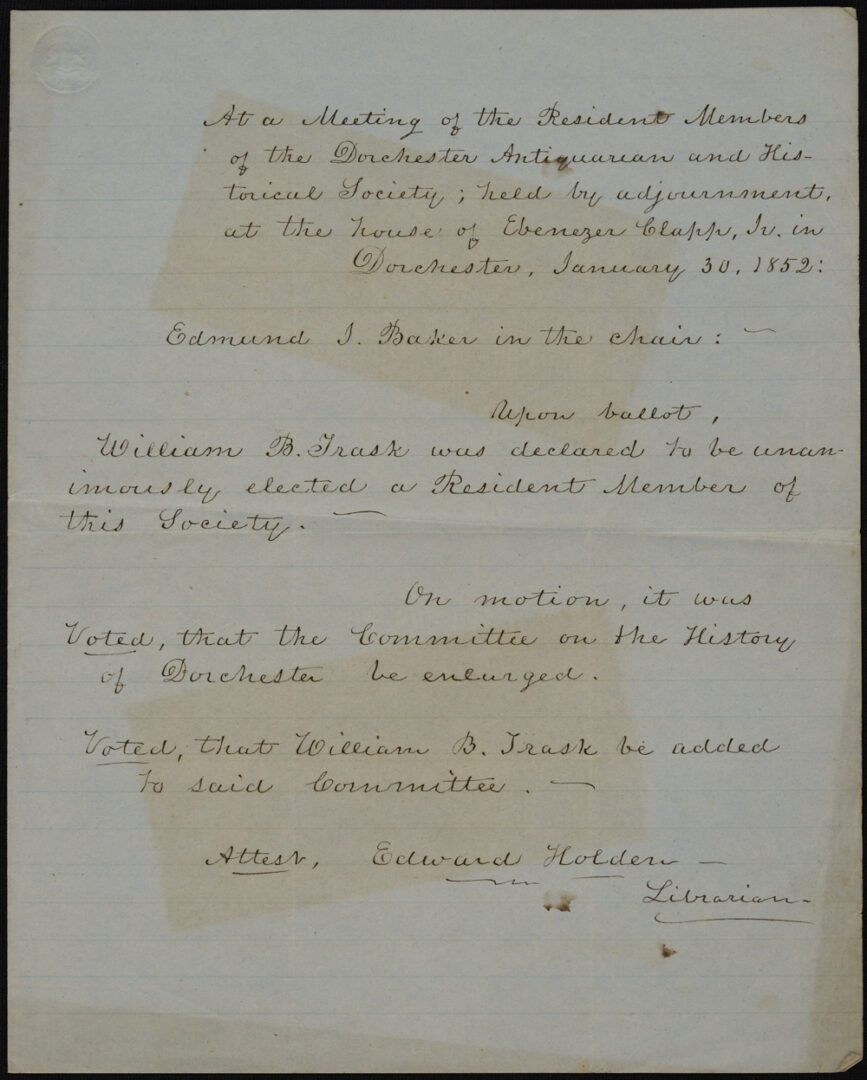 At a Meeting of the Resident Members
of the Dorchester Antiquarian and His-
torical Society; held by adjournment,
at the house of Ebenezer Clapp, Jr. in
Dorchester, January 30, 1852:
Edmund J. Baker in the chair: —
Upon ballot,
William B. Trask was declared to be unan-
imously elected a Resident Member of
this Society. —
On motion, it was
Voted, that the Committee on the History
of Dorchester be enlarged.
Voted, that William B. Trask be added
to said Committee. —
Attest, Edward Holden —
Librarian —